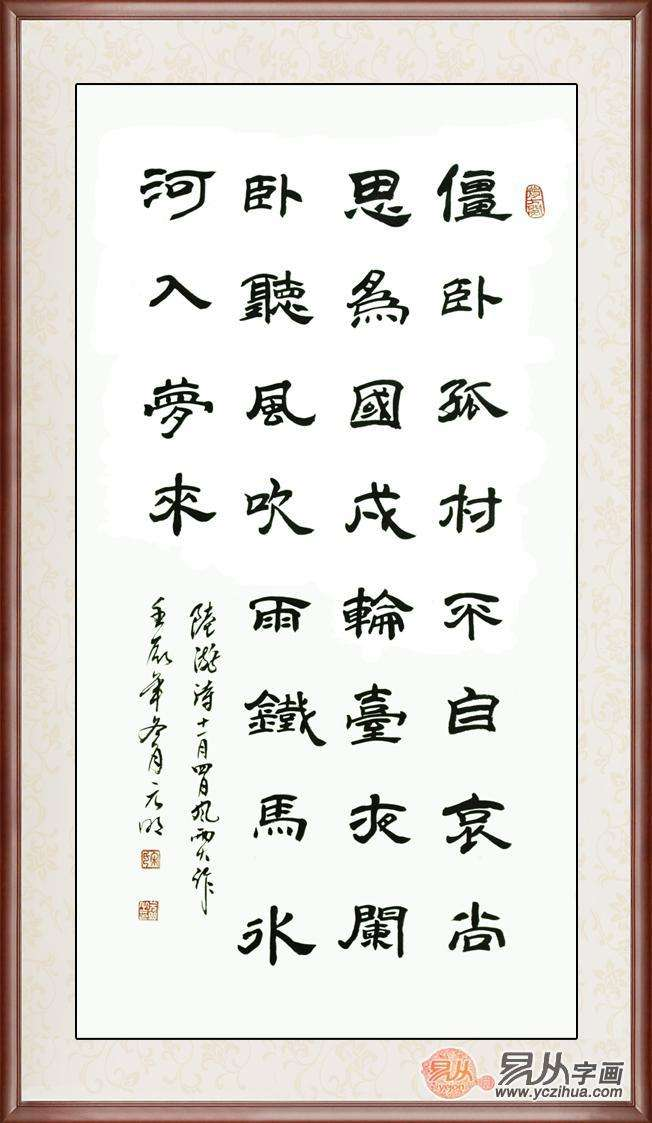 僵卧孤村不自哀尚
思為國戍輪臺夜闌
卧聽風吹雨鐵馬冰
河入夢來
陸游詩十一月四日風雨大作
壬辰年冬月元明
易从
易从字画
www.yczihua.com